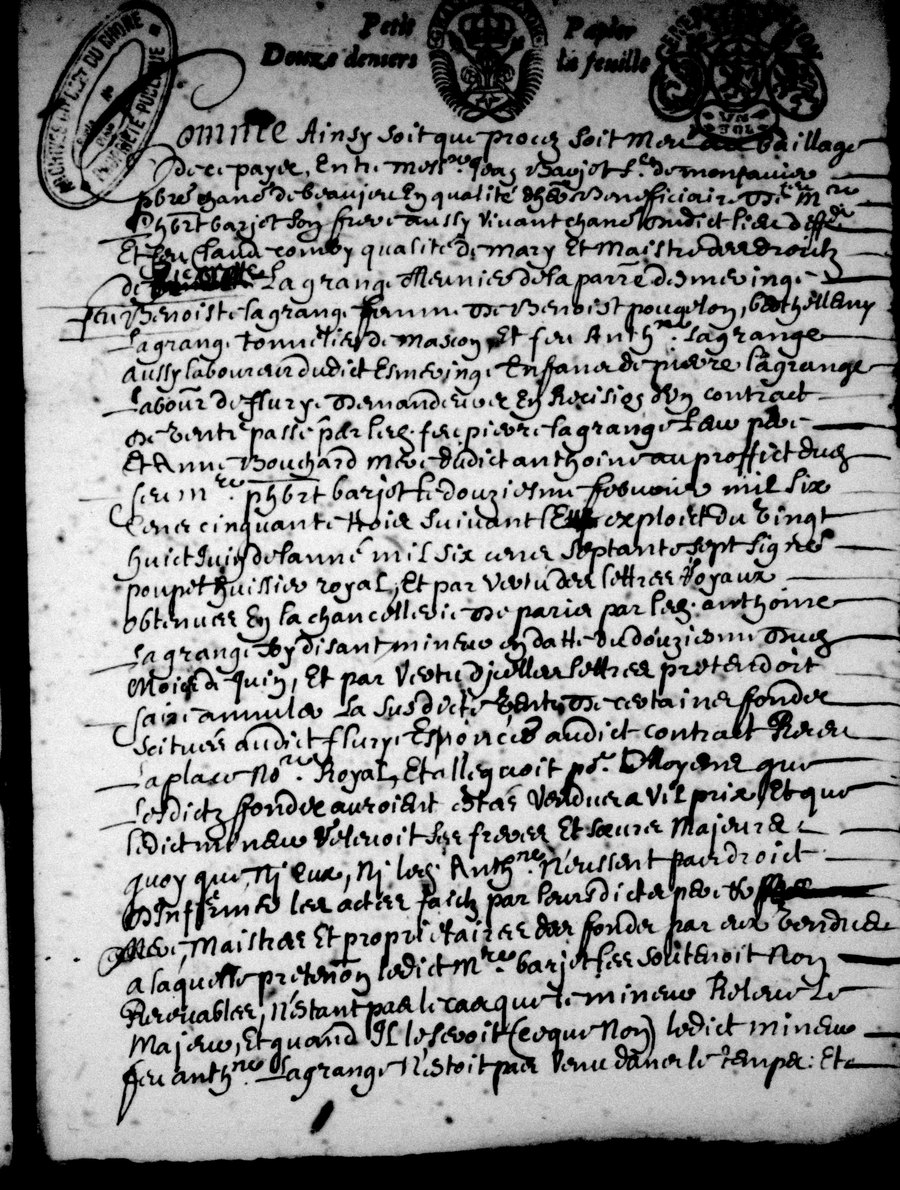 Petit Papier
Douze deniers la feuille
ARCHIVES DU DEPT DU RHONE
Comme Ainsy soit que proces soit Meu au bailliage
de ce pays, Entre Mess.re Jean Barjot S.r de montauier
pbre chanē de beaujeu En qualité d'her
Phbrt barjot son frere aussy vivant chanē dudict lieu deff.r
Et feu Claud comby qualité de Mary Et Maistre des droitz
de Lagrange Meunier de la parr̄e desmeringe
feu Benoiste lagrange femme de Benoist pougelon, barthellemy
Lagrange tonnellier de Mascon, Et feu Anth.ne Lagrange
aussy laboureur dudict Esmeringe Enffans de pierre lagrange
Labour de flurye demandeurs En Recision d'un contract
de vente passé par les. feu pierre lagrange Leur pere
Et Anne Bouchard Mere dudict anthoine au proffict dud
feu m.re phbrt barjot le douziesme febvrier mil six
Cens cinquante trois suivant l'exploict du vingt
huict Juin de l'anné mil six cens septante sept signé
poupet huissier royal, Et par vertu des lettres Royaux
obtenues En la chancellerie de paris par les. anthoine
Lagrange soy disant mineur en datte du douziesme dud
Mois de Juin, Et par vertu d'jcelles lettres pretendoit
faire annuler La susdicte vente de certains ffondz
scitués audict flurye Espoiciés audict contract Receu
Laplace No.re Royal, Et alleguoit po.r Moyens que
Lesdictz ffondz auroient estés vendus a vil prix, Et que
ledict mineur Relevoit ses freres Et sœurs Majeurs
quoy que, Nj Eux, Nj les. Anth.ne N'eussent pas droict
D'Infirmer les actes faictz par leursdictz pere &
Mere, Maistres Et proprietaires des fondz par eux vendus
a laquelle pretention ledict M.re barjot les soutenoit Non
Recevables, N'estant pas le cas que le mineur Releve Le
Majeur, Et quand Il le seroit (ce que Non) ledict mineur
feu anth.ne Lagrange N'estoit pas venu dans le temps: Et